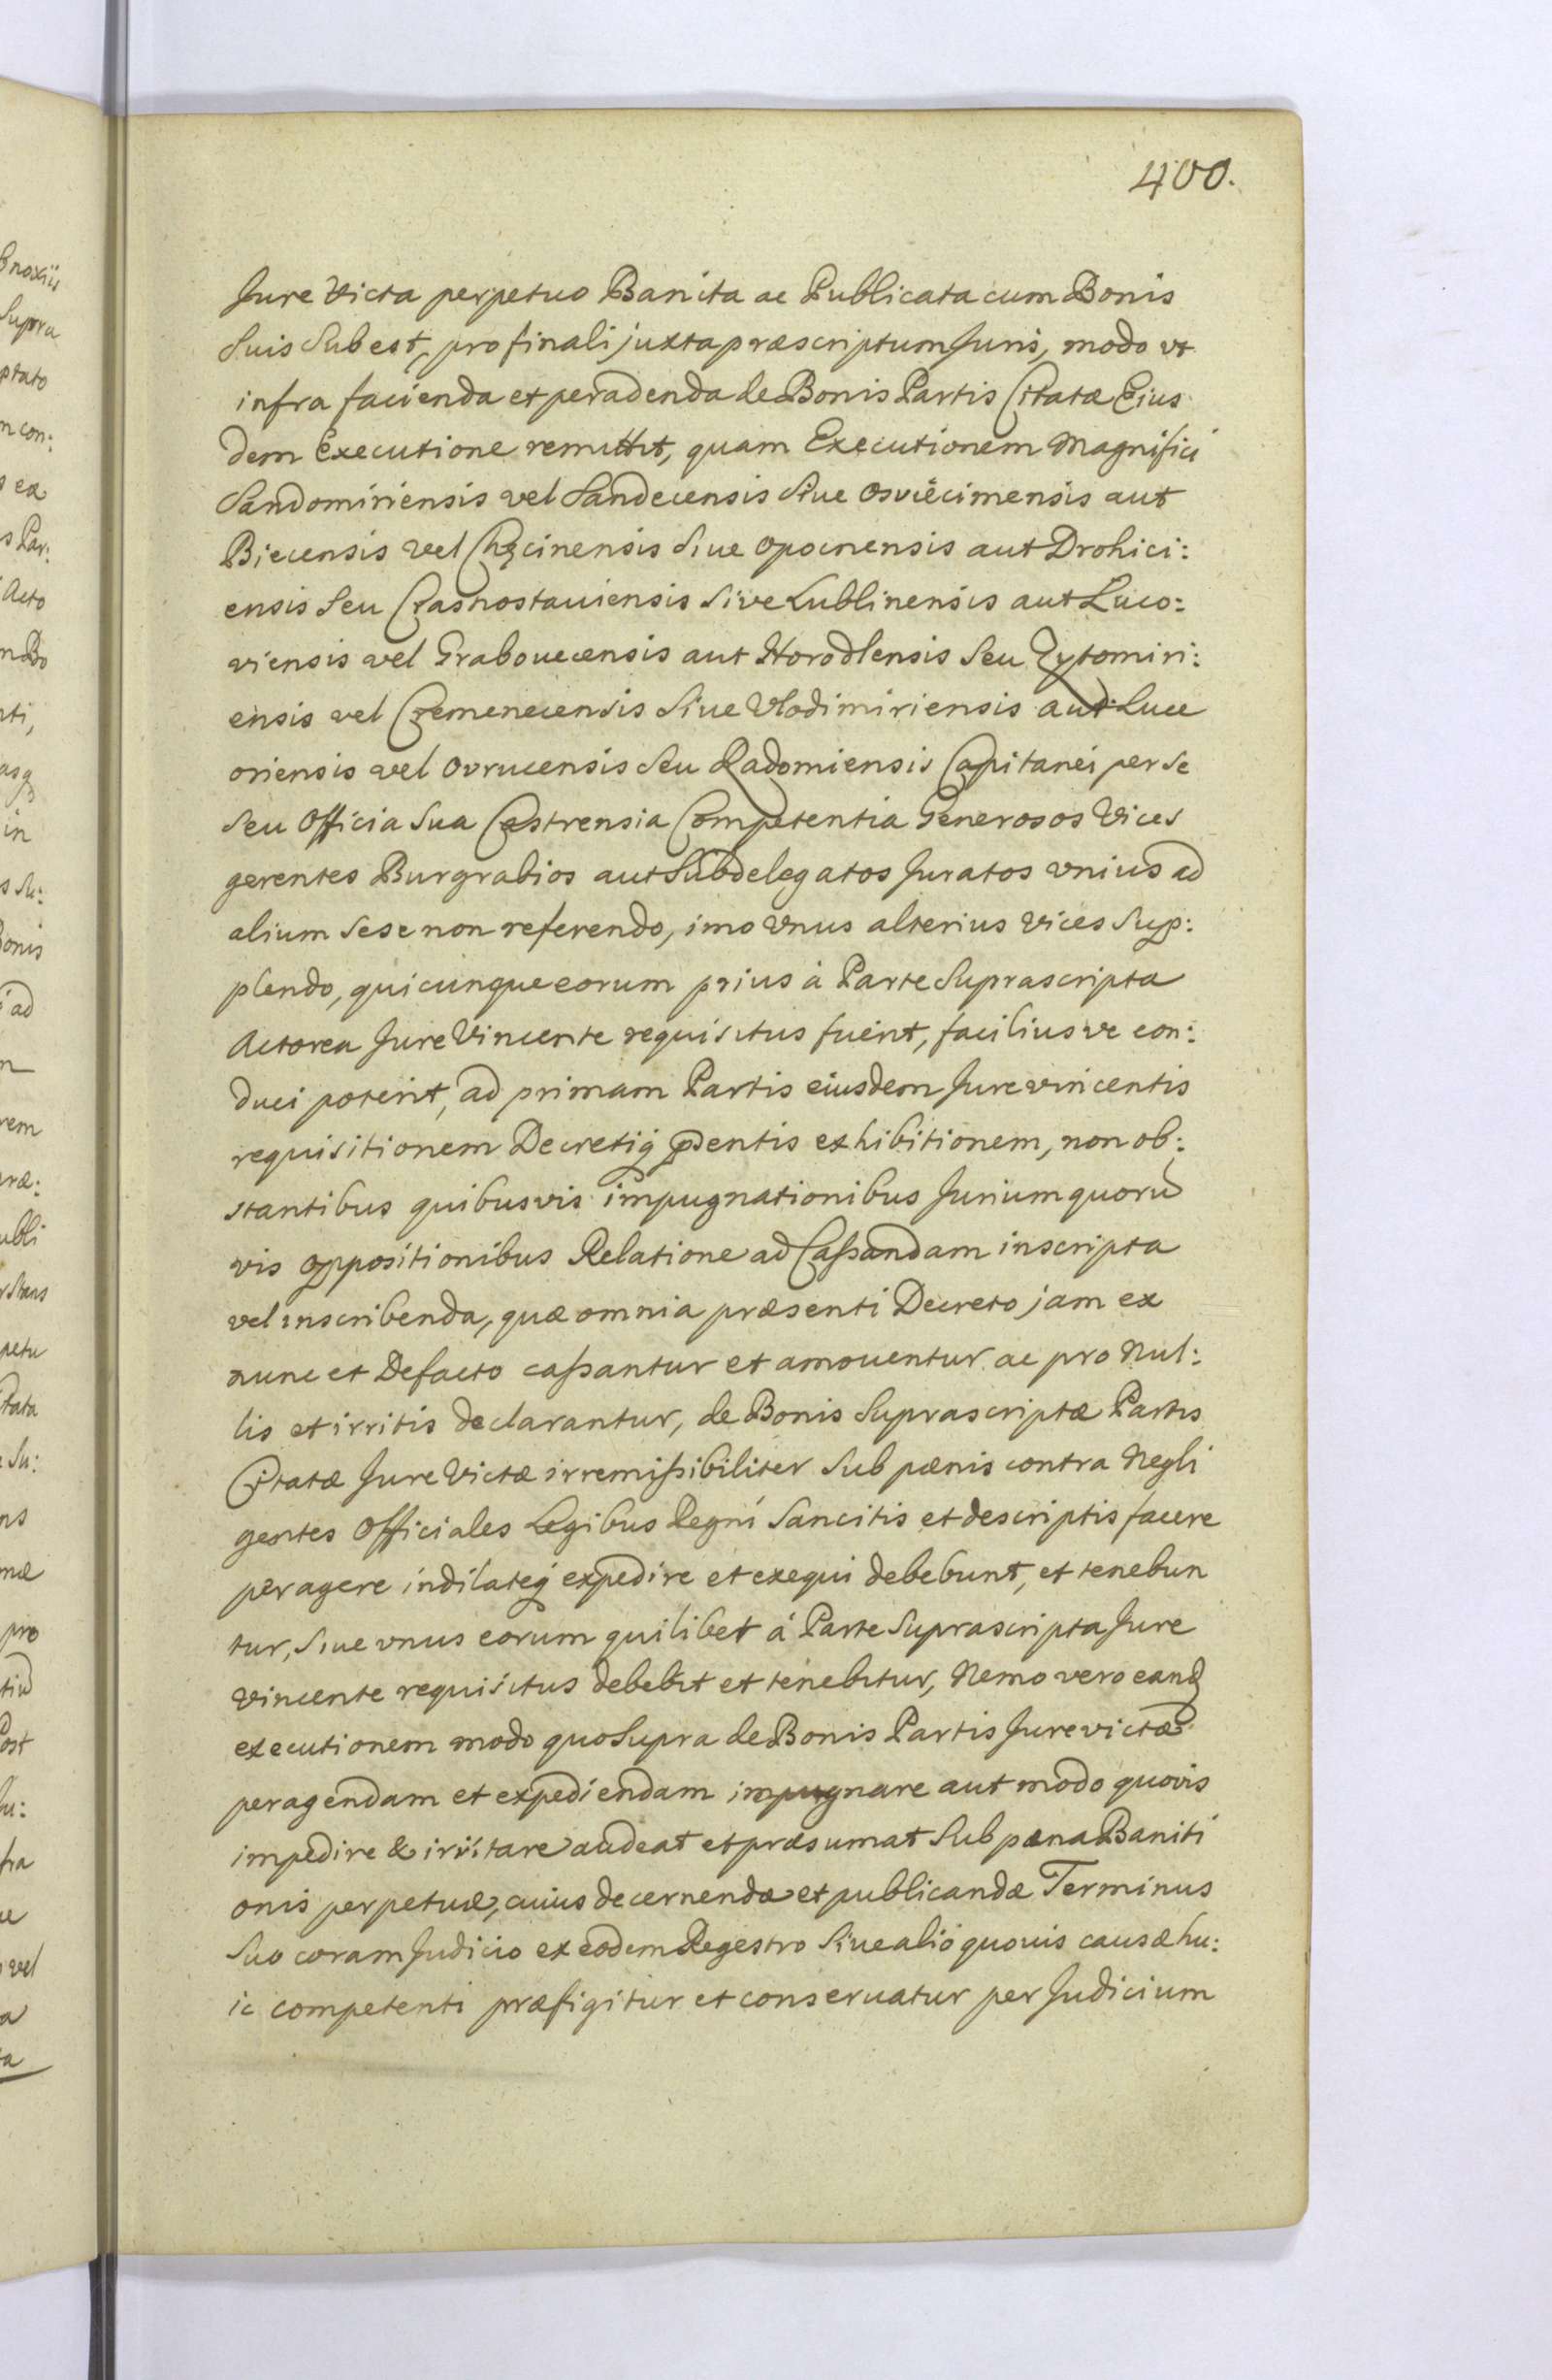 400.
Jure Victa perpetuo Banita ac Publicata cum Bonis
Suis Subest, pro finali juxta præscriptum Juris, modo vt
infra facienda et peradenda de Bonis Partis Citatæ Eius
dem Executione remittit, quam Executionem Magnifici
Sandomiriensis vel Sandecensis Siue Osviecimensis aut
Biecensis vel Chęcinensis Siue Opocnensis aut Drohici:
ensis Seu Crasnostauiensis Sive Lublinensis aut Luco:
viensis vel Grabouecensis aut Horodlensis Seu Zytomiri:
ensis vel Cremenecensis Siue Vlodimiriensis aut Luce
oriensis vel Ovrucensis Seu Radomiensis Capitanei per Se
Seu Officia Sua Castrensia Competentia Generosos Vices
gerentes Burgrabios aut Subdelegatos Juratos vnius ad
alium Sese non referendo, imo Vnus alterius Vices Sup:
plendo, quicunque eorum prius à Parte Suprascripta
Actorea Jure Vincente requisitus fuerit, faciliusve con:
duci poterit, ad primam Partis eiusdem Jure vincentis
requisitionem Decretiq̨ pdentis exhibitionem, non ob:
stantibus quibusvis impugnationibus Jurium quorū
vis oppositionibus Relatione ad Caſsandam inscripta
vel inscribenda, quæ omnia præsenti Decreto jam ex
nunc et Defacto caſsantur et amouentur ac pro Nul:
lis et irritis declarantur, de Bonis Suprascriptæ Partis
Citatæ Jure Victæ irremiſsibiliter Sub pœnis contra Negli
gentes Officiales Legibus Regni Sancitis et descriptis facere
peragere indilateq̨ expedire et exequi debebunt, et tenebun
tur, Siue vnus eorum quilibet à Parte Suprascripta Jure
Vincente requisitus debebit et tenebitur, Nemo vero eand
executionem modo quo Supra de Bonis Partis Jure victæ
peragendam et expediendam impugnare aut modo quovis
impedire & irritare audeat et præsumat Sub pœna Baniti
onis perpetuæ, cuius decernendæ et publicandæ Terminus
Suo coram Judicio ex eodem Regestro Siue alio quouis causæ hu:
ic competenti præfigitur et conseruatur per Judicium